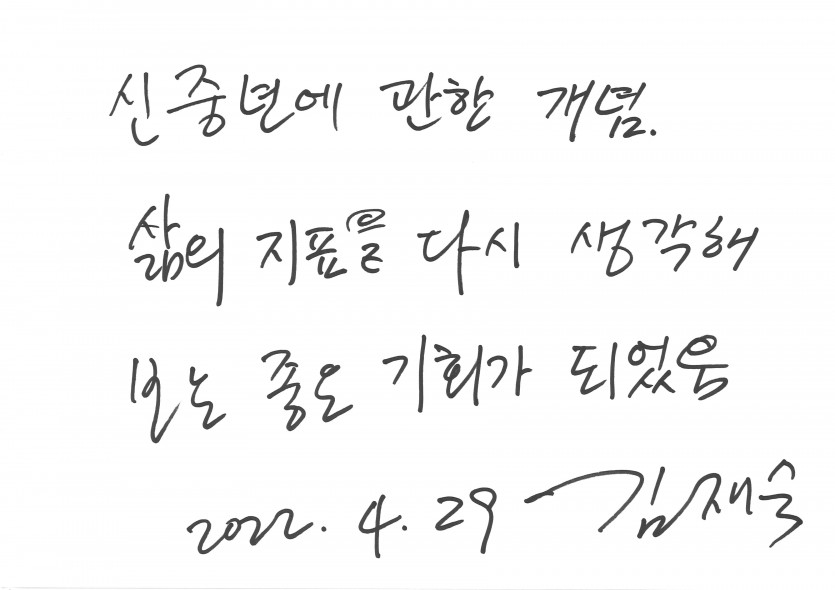 신중년에 관한 개념.
삶의 지표를 다시 생각해
보는 좋은 기회가 되었음
2022. 4. 29 김재숙